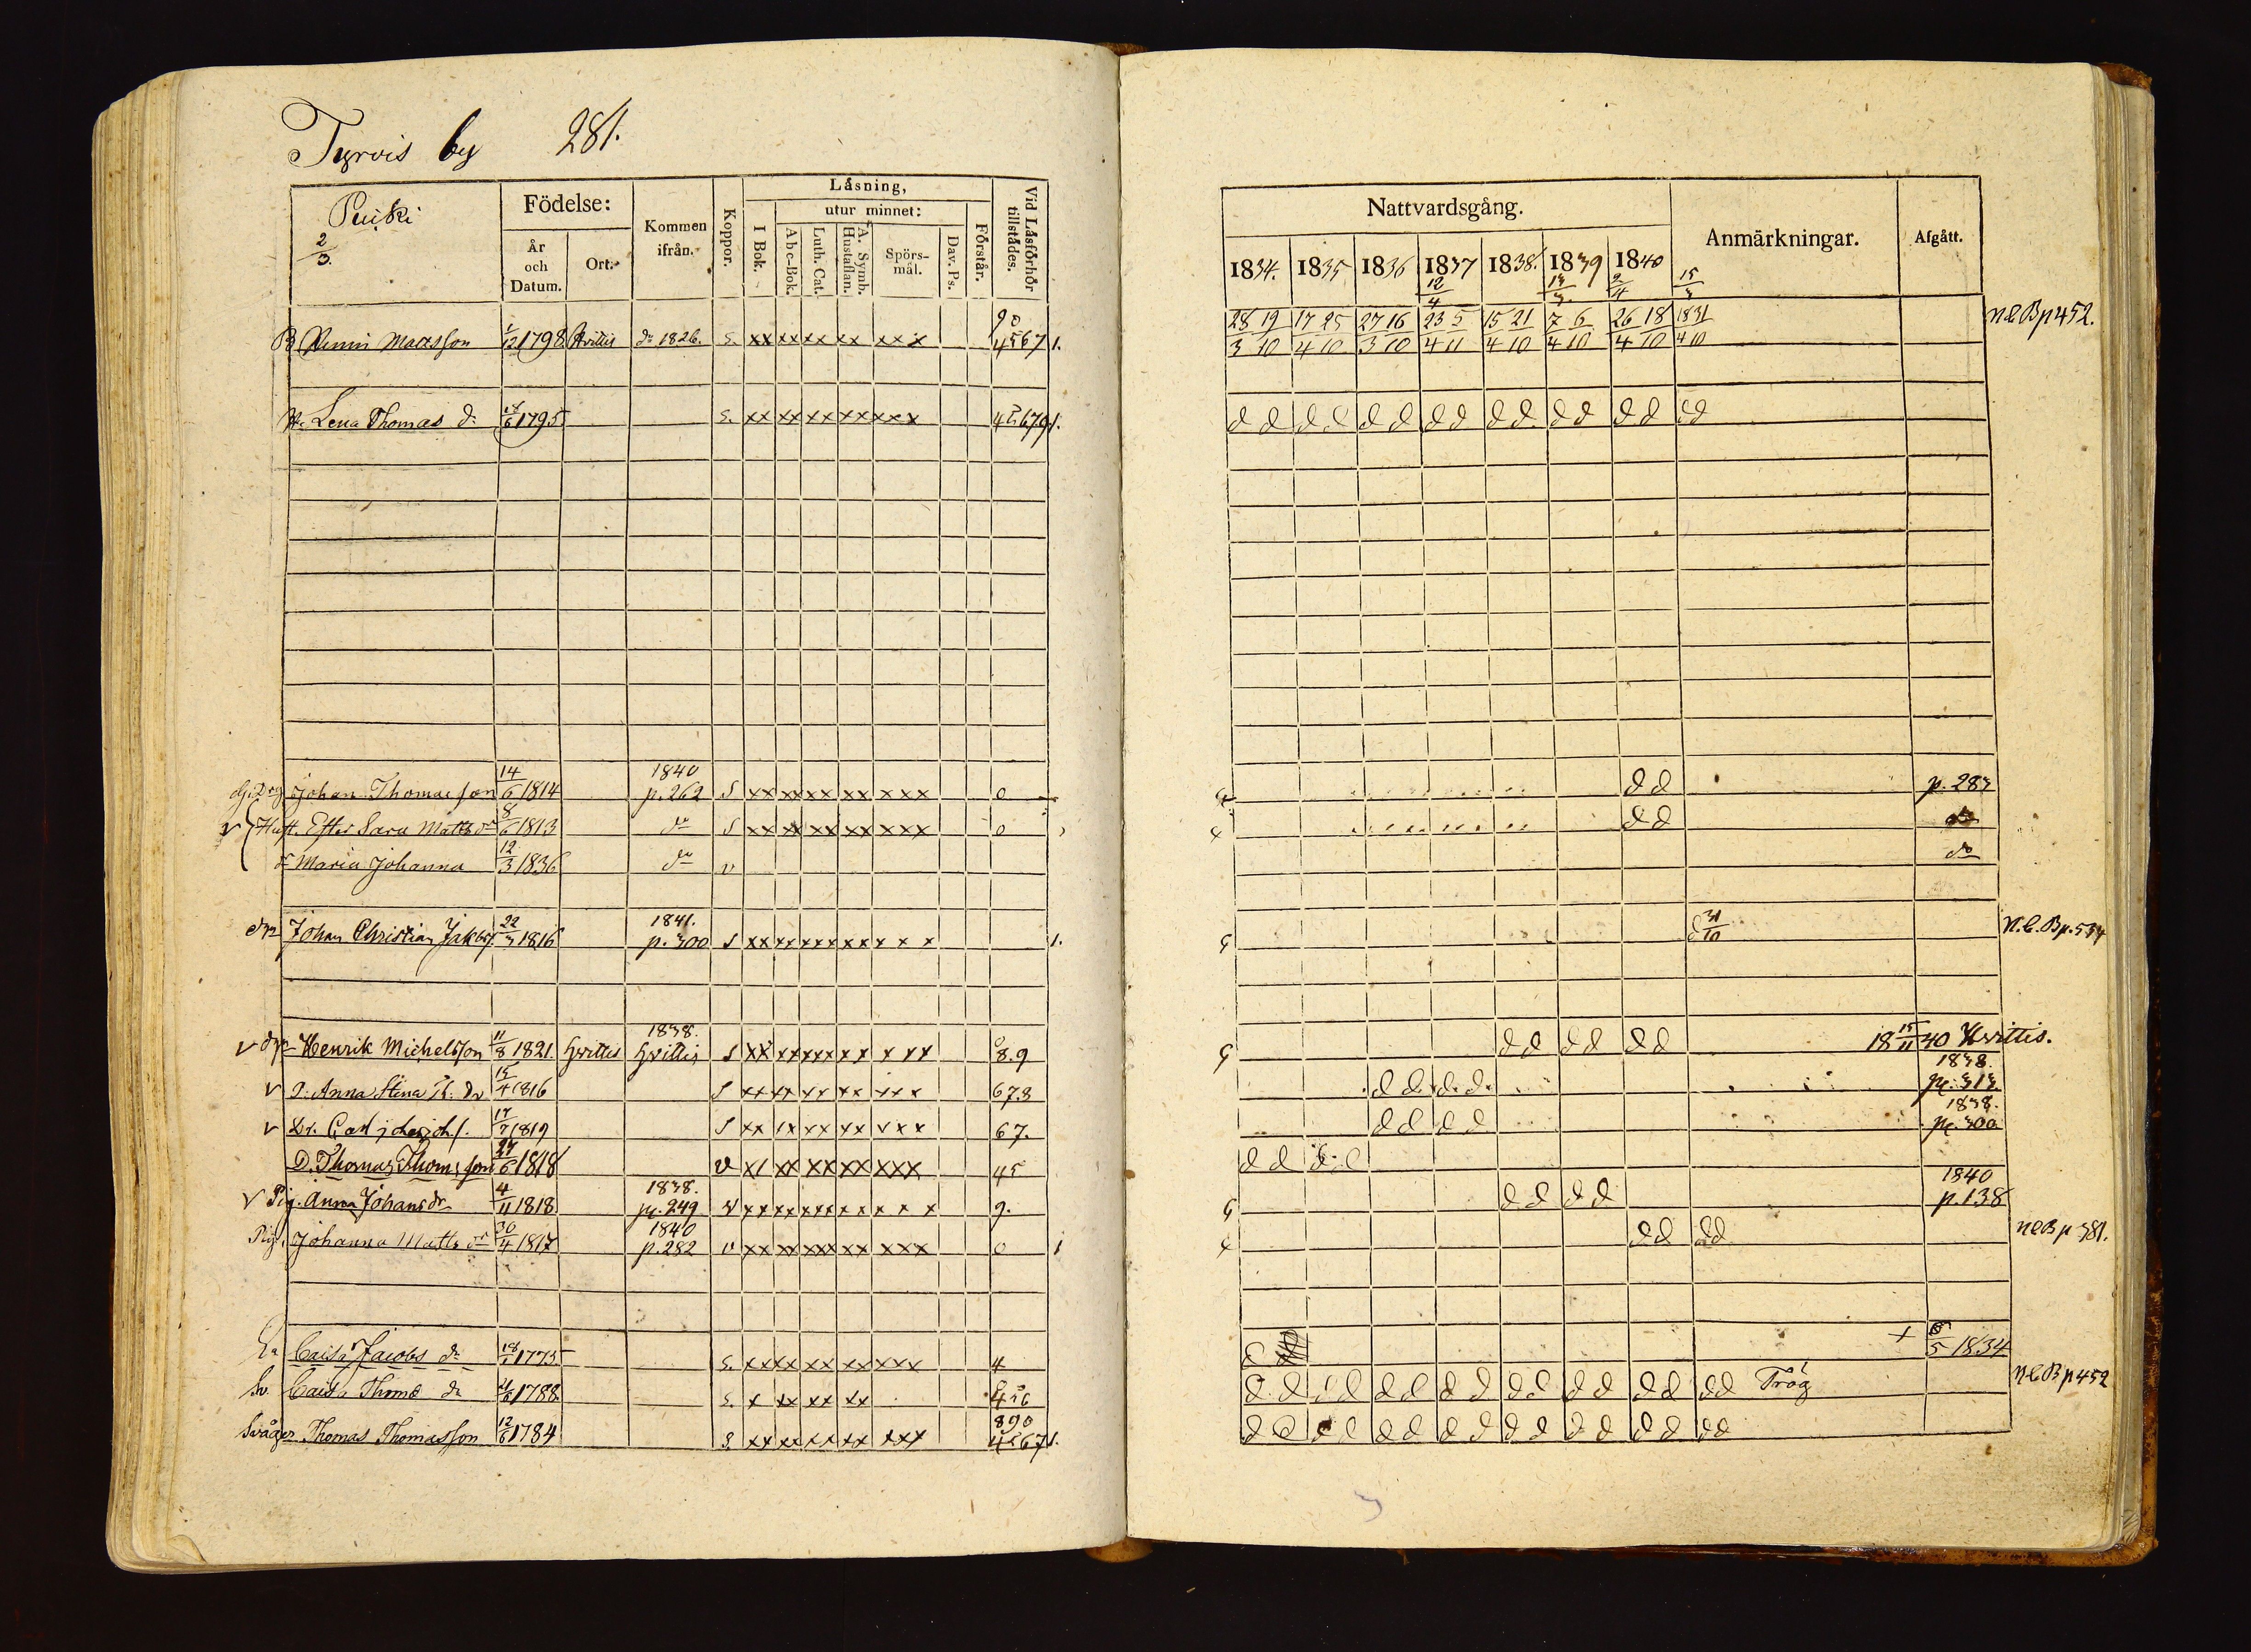 Tyrvis by 281.
Födelse: Kommen ifrån. Koppor. Låsning, Vid Låsförhör tillstådes.
2/3
År och Datum. Ort. I Bok. utur minnet: Förstår.
A b c-Bok. Luth. Cat. A. Symb. Hustaflan. Spörs-mål. Dav. Ps.
Mattsson 1/12 1798 dn 1826. S. xx xx xx xx xxx 90 4567 1.
Lena Thomas d. 1795 S. xx xx xx xx xxx
Johan Thomas son 14/6 1814 1840 p. 262 S xx xx xx xx xxx 0
Hust. Ester Sara Matts dr 8/6 1813 do S xx xx xx xx xxx 0
dr Maria Johanna 12/3 1836 do v
Johan Christian Jakobs. 22/3 1816 1841. p. 300 S xx xx xx xx x x x 1.
v Henrik Michelsson 11/8 1821. Hvittis 1838. Hvittis S xx xx xx xx x xx 8.9
v P. Anna Stina Th. dr 15/4 1816 S xx xx xx xx xxx 67.8
v Dr. Carl 1819 S xx xx xx xx xxx 67.
D. Thomas Thomasson 27/6 1818 v x/ xx xx xx xxx 45
v Pig. Anna Johans dr 4/11 1818 1838. p. 249 v xx xx xx xx x x x 9.
Pig. Johanna Matts dr 30/4 1817 1840 p. 282 v xx xx xxx xx xxx 0 1
Caisa Jacobs dr 18/1 1773 S. xx xx xx xx xxx 4
Caisa Thoms dr 1788 S. x xx xx xx
Svåger Thomas Thomasson 12/6 1784 S xx xx xx xx xxx 890 4567 1.
Nattvardsgång. Anmärkningar. Afgått.
1834. 1835 1836 1837 1838. 1839 1840
12/4 13/3 2/4 15/3
28 19 17 25 27 16 23 5 15 21 7 6 26 18 18 31
3 10 4 10 3 10 4 11 4 10 4 10 4 10 4 10
N C B p 452.
d d d d d d d d d d d d d d d d
d d p. 283
d d do
do
d 31/10 N. C. B p. 534
d d d d d d 18 15/11 40 Hvittis.
d d. d. d. 1838. p. 313
d d d d 1838. p. 300
d d d d
d d d d 1840 p. 138
d d d d N C B p 381.
d + 5/5 1834
d d d d d d d d d d d d d d d d Trög N C B p 452
d d d d d d d d d d d d d d d d